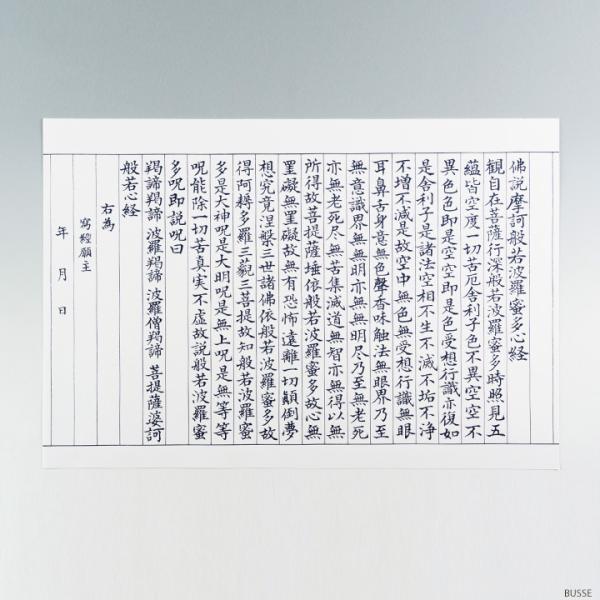 佛説摩訶般若波羅蜜多心経
観自在菩薩行深般若波羅蜜多時照見五
蘊皆空度一切苦厄舎利子色不異空空不
異色色即是空空即是色受想行識亦復如
是舎利子是諸法空相不生不滅不垢不浄
不増不減是故空中無色無受想行識無眼
耳鼻舌身意無色聲香味触法無眼界乃至
無意識界無無明亦無無明尽乃至無老死
亦無老死尽無苦集滅道無智亦無得以無
所得故菩提薩埵依般若波羅蜜多故心無
罣礙無罣礙故無有恐怖遠離一切顛倒夢
想究竟涅槃三世諸佛依般若波羅蜜多故
得阿耨多羅三藐三菩提故知般若波羅蜜
多是大神呪是大明呪是無上呪是無等等
呪能除一切苦真実不虚故説般若波羅蜜
多呪即説呪曰
羯諦羯諦 波羅羯諦 波羅僧羯諦 菩提薩婆訶
般若心経
右為
寫經願主
年 月 日
BUSSE